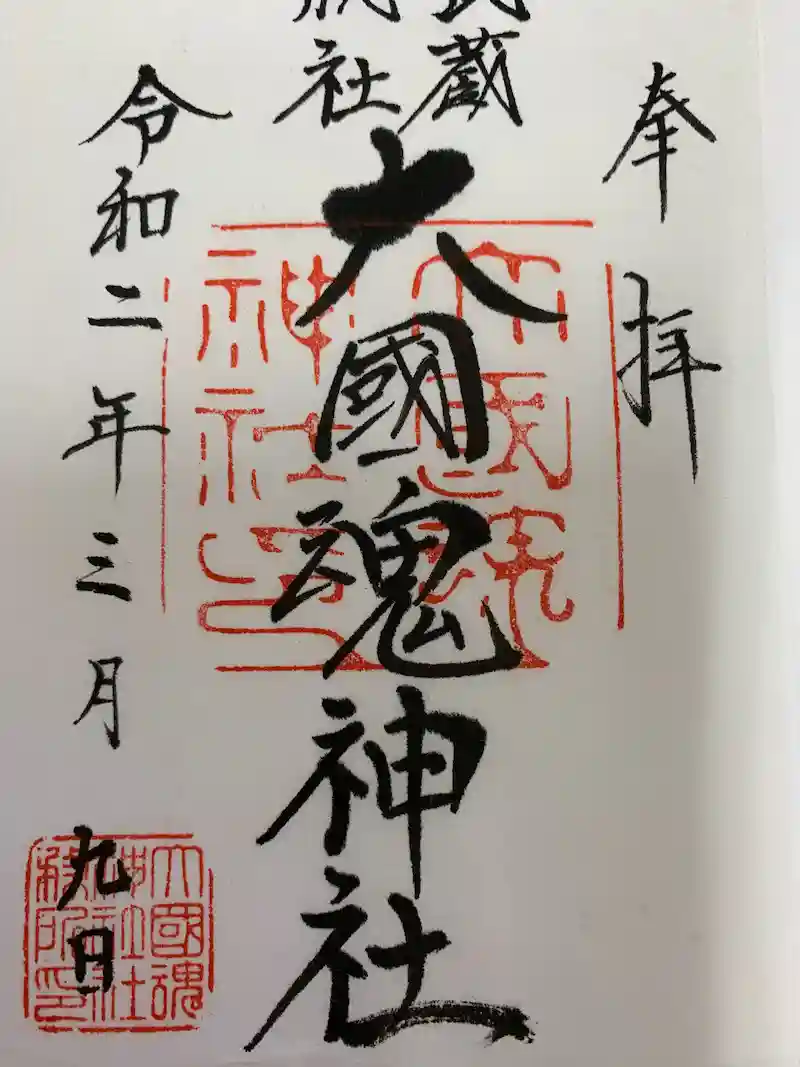 奉拝
武蔵
総社
大國魂神社
令和二年三月九日
大國魂
神社印
大國魂
神社
務所印